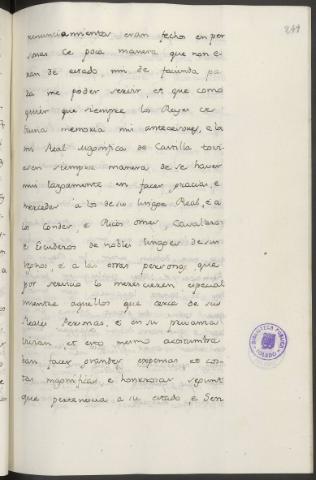 241
renunciamientos eran fechos en per
sonas de poca manera que non e
ran de estado, nin de facienda pa
ra me poder servir, et que como
quier que siempre los Reyes de
buena memoria mis antecesores, e la
mi Real Magnifica de Castilla tovi
eron siempre manera de se haver
mui largamente en facer gracias, e
mercedes a los de su linage Real, e a
los Condes, e Ricos omes, Cavalleros
e Escuderos de nobles linages de sus
regnos, e a las otras personas que
por servicio lo merecieren especial
mientre aquellos que cerca de sus
Reales Personas, e en su privanza
vivian, et esto mesmo acostumbra
ban facer grandes expensas et cos
tas magnificas, e honrrosas, segunt
que pertenecia a su estado, e Sen
BIBLIOTECA PUBLICA
TOLEDO